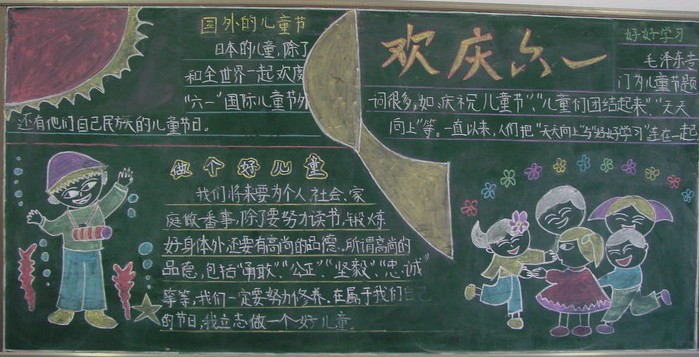 国外的儿童节
日本的儿童,除了
和全世界一起欢度
“六一”国际儿童节外
还有他们自己民族的儿童节日。
欢庆六一
好好学习
毛泽东专
门为儿童节题
词很多,如,庆祝儿童节”,“儿童们团结起来”,“天天
向上”等。一直以来,人们把“天天向上”与“好好学习”连在一起
做个好儿童
我们将来要为个人、社会、家
庭做一番事,除了要努力读书,锻炼
好身体外,还要有高尚的品德。所谓高尚的
品德,包括“勇敢”“公正”“坚毅”“忠诚”
等等,我们一定要努力修养。在属于我们自己
的节日,我立志做一个好儿童